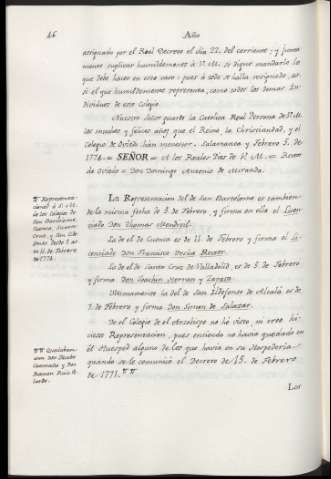 46
Año
asignado por el Real Decreto el dia 22. del corriente: y juntamente
suplicar humildemente à V. M. se digne mandarle lo
que debe hacer en este caso: pues à todo se halla resignado, asi
el que humildemente representa, como todos los demas Individuos
de este Colegio.
Nuestro Señor guarde la Catolica Real Persona de V. M.
los muchos y felices años que el Reino, la Christiandad, y el
Colegio de Oviedo han menester. Salamanca y Febrero 5. de
1771. = SEÑOR = A los Reales Pies de V. M. =
de Oviedo = Don Domingo Antonio de Miranda.
¶ Representaciones
à S. M.
de los Colegios de
San Bartolomé,
Cuenca, Santa
Cruz, y San Ildefonso
desde 5. de
à 11. de Febrero
de 1771.
La Representacion del de San Bartolomé es tambien
de la misma fecha de 5. de Febrero, y firma en ella el Licenciado
Don Thomas
La de el de Cuenca es de 11. de Febrero y firma el Licenciado
Don Francisco
La de el de Santa Cruz de Valladolid, es de 5. de Febrero
y firma Don Joachin Herran y Zapata.
Ultimamente la del de San Ildefonso de Alcalá es de
7. de Febrero y firma Don Simon de Salazar.
¶¶
Don
y Don
De el Colegio de el Arzobispo no hè visto, ni creo hiciese
Representacion, pues entiendo no havia quedado en
èl Huesped alguno de los que havia en su Hospederia
quando se le comunicò el Decreto de 15. de Febrero
de 1771. ¶¶
Los